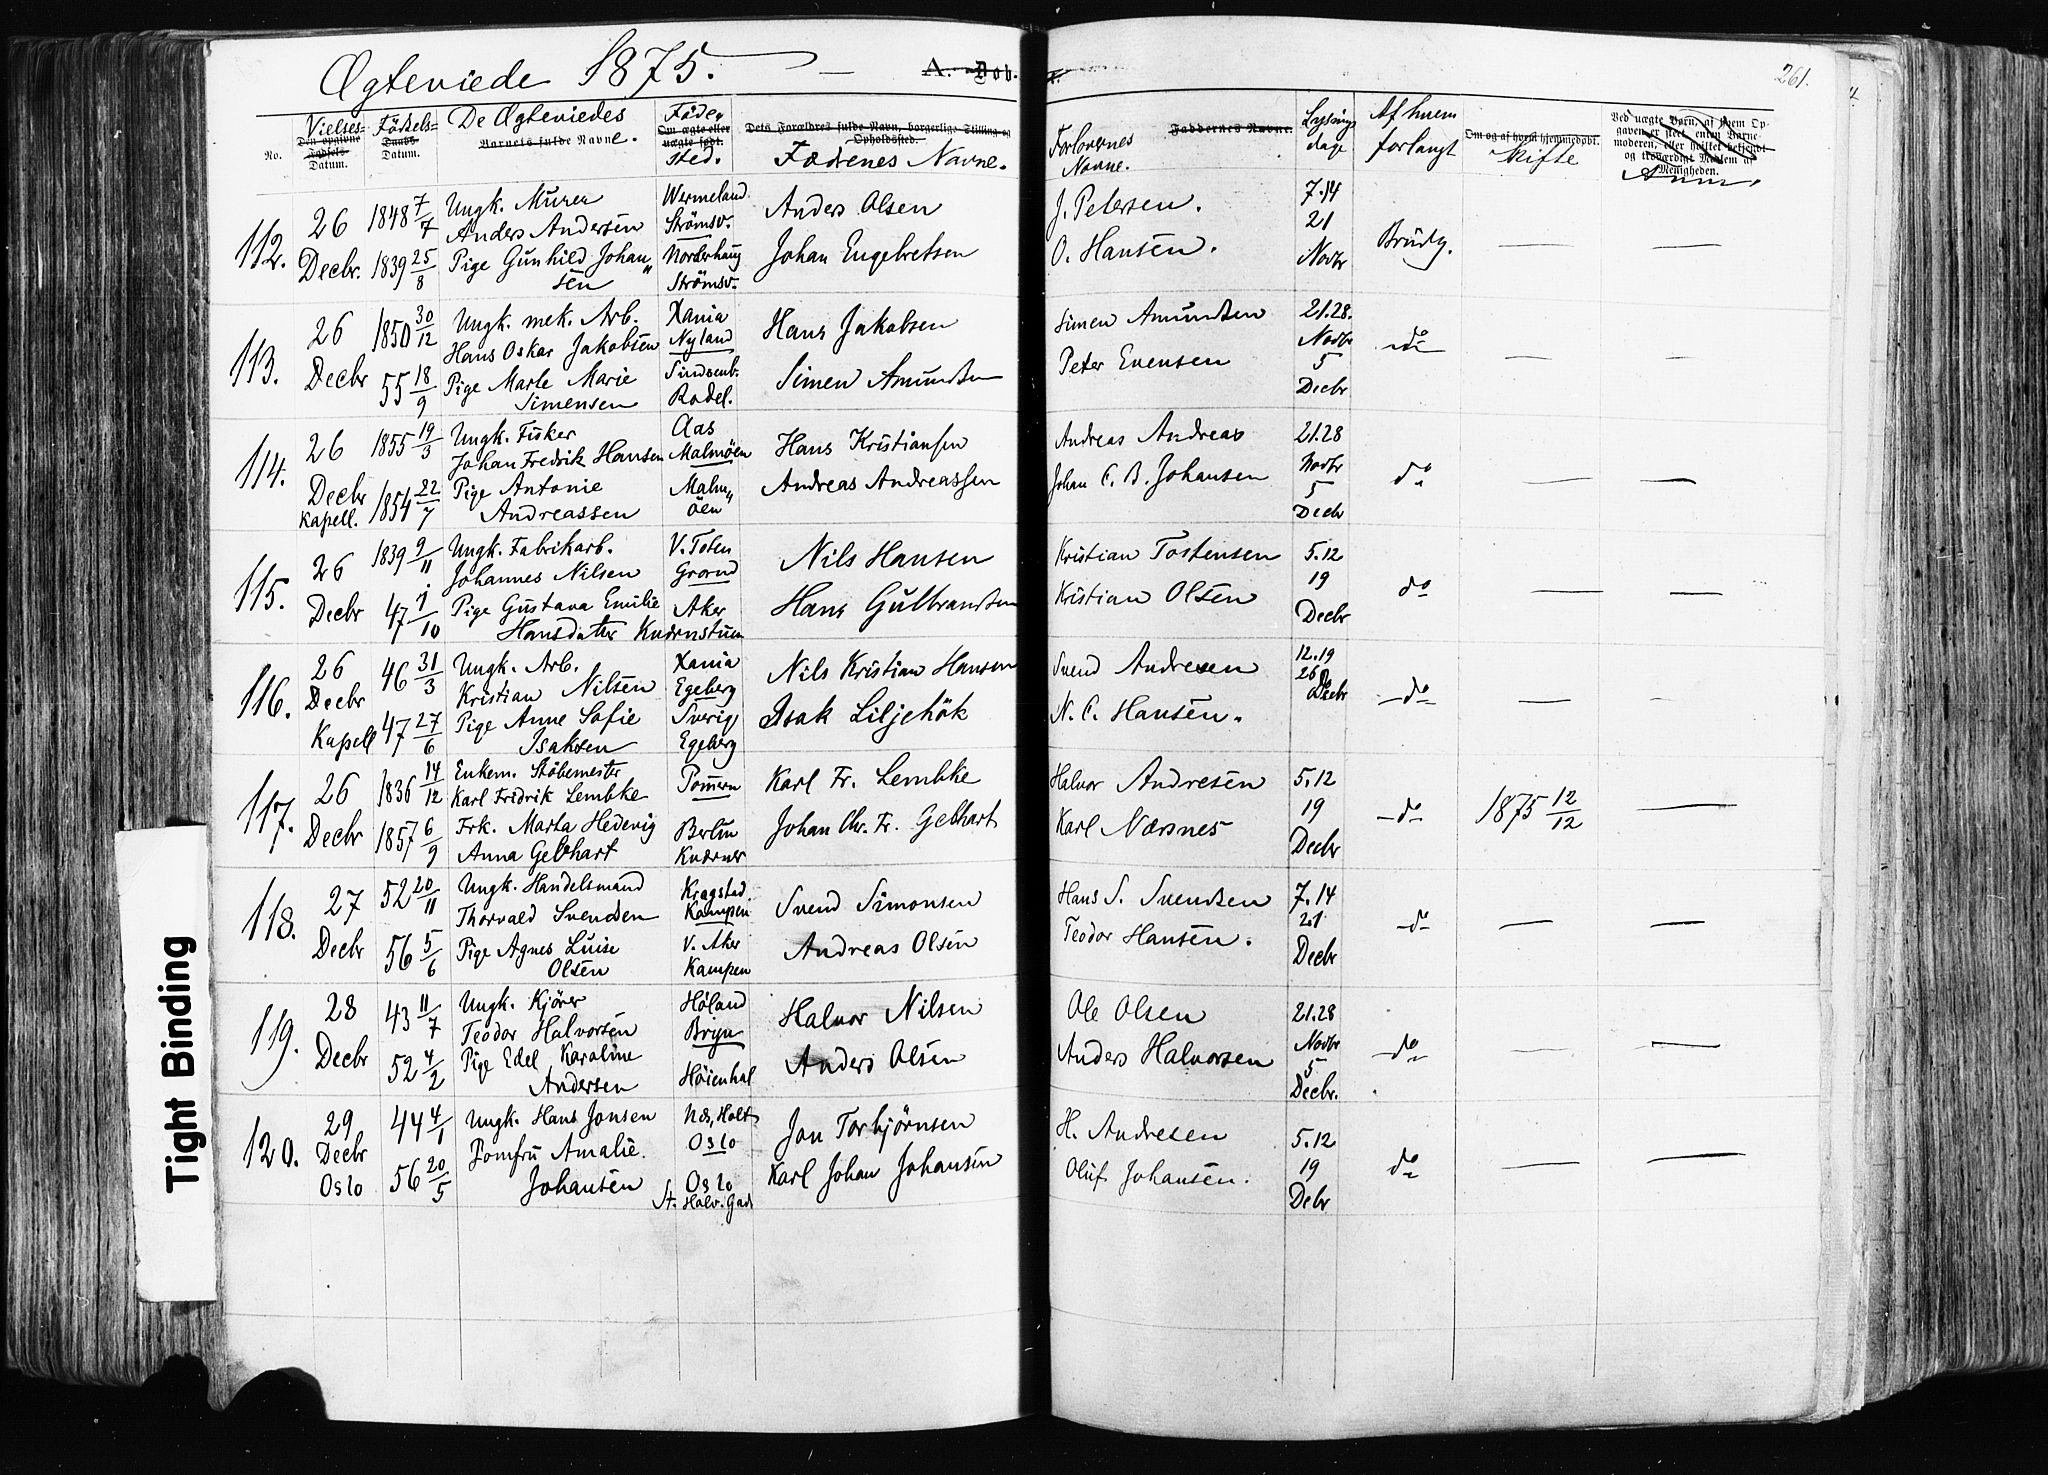 Ægteviede 1875. — A. Døb.
261.
No.
Vielses=
Den opgivne Fødsels-
Datum.
Födsels=
Daabs
Datum.
De Ægteviedes
Barnets fulde Navne.
Føde,
Om ægte eller uægte født.
sted.
Dets Forældres fulde Navn, borgerlige Stilling og Opholdssted.
Fædrenes Navne.
Faddernes Navne.
Forlovernes
Navne.
Lysnings
dage
Af hvem
forlangt
Om og af hvem hjemmedøbt.
skifte
Ved uægte Børn, af hvem Op-
gaven er skeet, enten Barne-
moderen, eller hvilket bekjendt
og troværdigt Medlem af
Menigheden.
Anm.
112. 26 Decbr.
1848 7/7 Ungk. Murer Anders Andersen Wermeland Strömsv. Anders Olsen
1839 25/8 Pige Gunhild Johan„ sen Norderhaug Strömsv. Johan Engebretsen
J. Petersen. O. Hansen. 7.14 21 Novbr Brudg. — —
113. 26 Decbr
1850 30/12 Ungk. mek. Arb. Hans Oskar Jakobsen Xania Nyland Hans Jakobsen
55 18/9 Pige Marte Marie Simensen Rodel. Simen Amundsen
Simen Amundsen Peter Evensen 21.28. Novbr 5 Decbr do — —
114. 26 Decbr Kapell.
1855 19/3 Ungk. Fisker Johan Fredrik Hansen Aas Malmöen Hans Kristiansen
1854 22/7 Pige Antonie Andreassen Malm„ öen Andreas Andreassen
Andreas Andreas Johan C. B. Johansen 21.28 Novbr 5 Decbr do — —
115. 26 Decbr
1839 9/11 Ungk. Fabrikarb. Johannes Nilsen V. Toten Grønd Nils Hansen
47 1/10 Pige Gustava Emilie Hansdatter Aker Kværnstuen Hans Gulbrandsen
Kristian Tostensen Kristian Olsen 5.12 19 Decbr do — —
116. 26 Decbr Kapell
46 31/3 Ungk. Arb. Kristian Nilsen Xania Egeberg Nils Kristian Hansen
47 27/6 Pige Anne Sofie Isaksen Sverig, Egeberg Isak Liljehök
Svend Andresen N. C. Hansen. 12.19 26 Decbr do — —
117. 26 Decbr
1836 14/12 Enkem. Støbemester Karl Fridrik Lembke Pomern Karl Fr. Lembke
1857 6/9 Frk. Marta Hedevig Anna Gebhart Berlin Kværner Johan Chr. Fr. Gebhart
Halvor Andresen Karl Næsnes 5.12 19 Decbr do 1875 12/12 —
118. 27 Decbr
52 20/11 Ungk. Handelsmand Thorvald Svendsen Krogstad Kampen Svend Simonsen
56 5/6 Pige Agnes Luise Olsen V. Aker Kampen Andreas Olsen
Hans S. Svendsen Teodor Hansen. 7.14 21 Decbr do — —
119. 28 Decbr
43 11/7 Ungk. Kjörer Teodor Halvorsen Höland Bryn Halvor Nilsen
52 4/2 Pige Edel Karoline Andersen Höienhal Anders Olsen
Ole Olsen Anders Halvorsen 21.28 Novbr 5 Decbr. do — —
120. 29 Decbr Oslo
44 4/1 Ungk. Hans Jonsen Næs, Holt Oslo Jon Torbjörnsen
56 20/5 Jomfru Amalie Johansen Oslo St. Halv. Gad Karl Johan Johansen
H. Andresen Oluf Johansen. 5.12 19 Debr do — —
Tight Binding